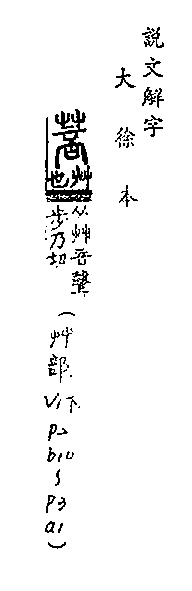 説文解字
大徐本
菩
艸也
从艸咅聲
步乃切
(艸部 V1下 P2 b10 ~ P3 a1)